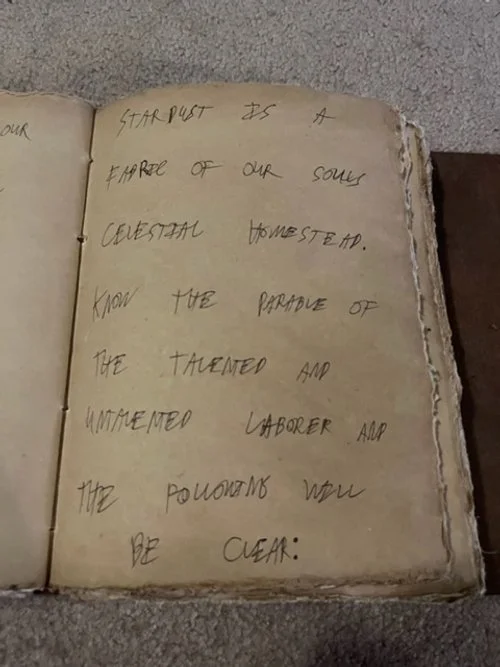 OUR
STARDUST IS A
FABRIC OF OUR SOULS
CELESTIAL HOMESTEAD.
KNOW THE PARABLE OF
THE TALENTED AND
UNTALENTED LABORER AND
THE FOLLOWING WILL
BE CLEAR: